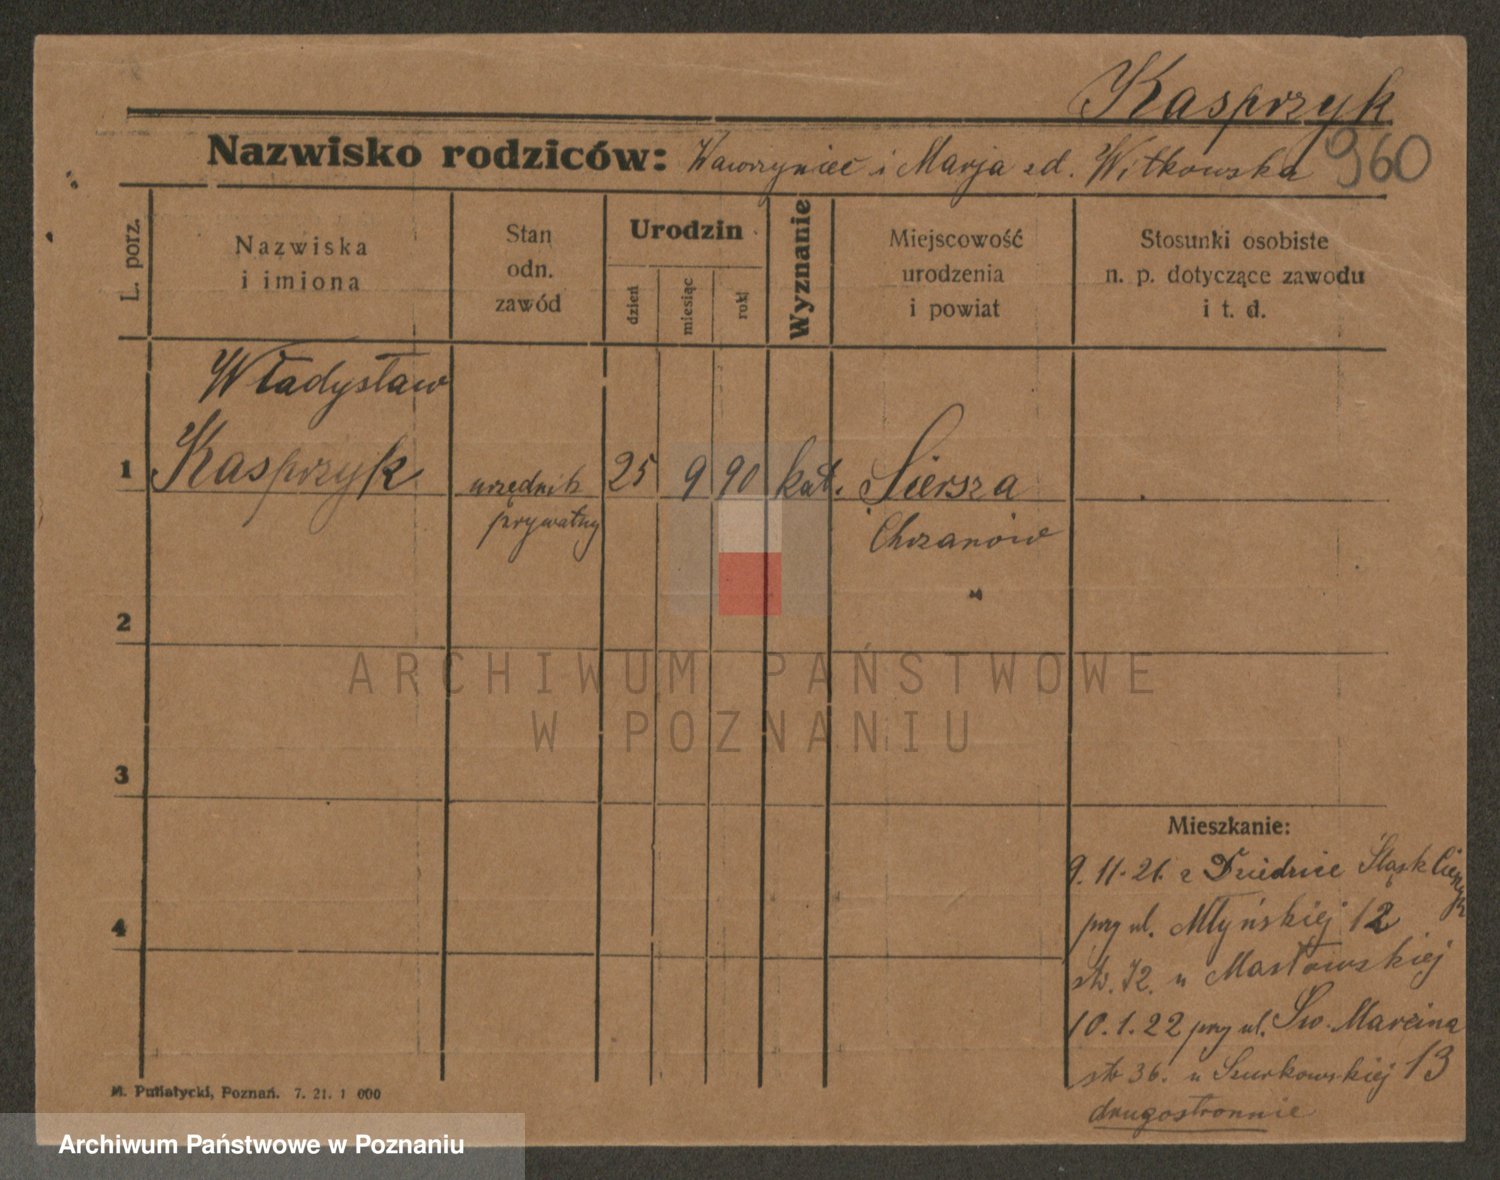 Kasprzyk
Nazwisko rodziców: Wawrzyniec i Marja zd. Witkowska 960
L. porz.
Nazwiska
i imiona
Stan
odn.
zawód
Urodzin
dzień
miesiąc
rok
Wyznanie
Miejscowość
urodzenia
i powiat
Stosunki osobiste
n. p. dotyczące zawodu
i t. d.
Władysław
1 Kasprzyk urzędnik 25 9 90 kat. Siersza
prywatny Chrzanów
2
ARCHIWUM PAŃSTWOWE
W POZNANIU
3
4
Mieszkanie:
9.11.21. z Dziedzice Śląsk Ciesz.
przy ul. Młyńskiej 12
str. 72. u Masłowskiej
10.1.22 przy ul. Św. Marcina
str 36. u Szurkowskiej 13
drugostronnie
M. Putiatycki, Poznań. 7. 21. 1 000
Archiwum Państwowe w Poznaniu